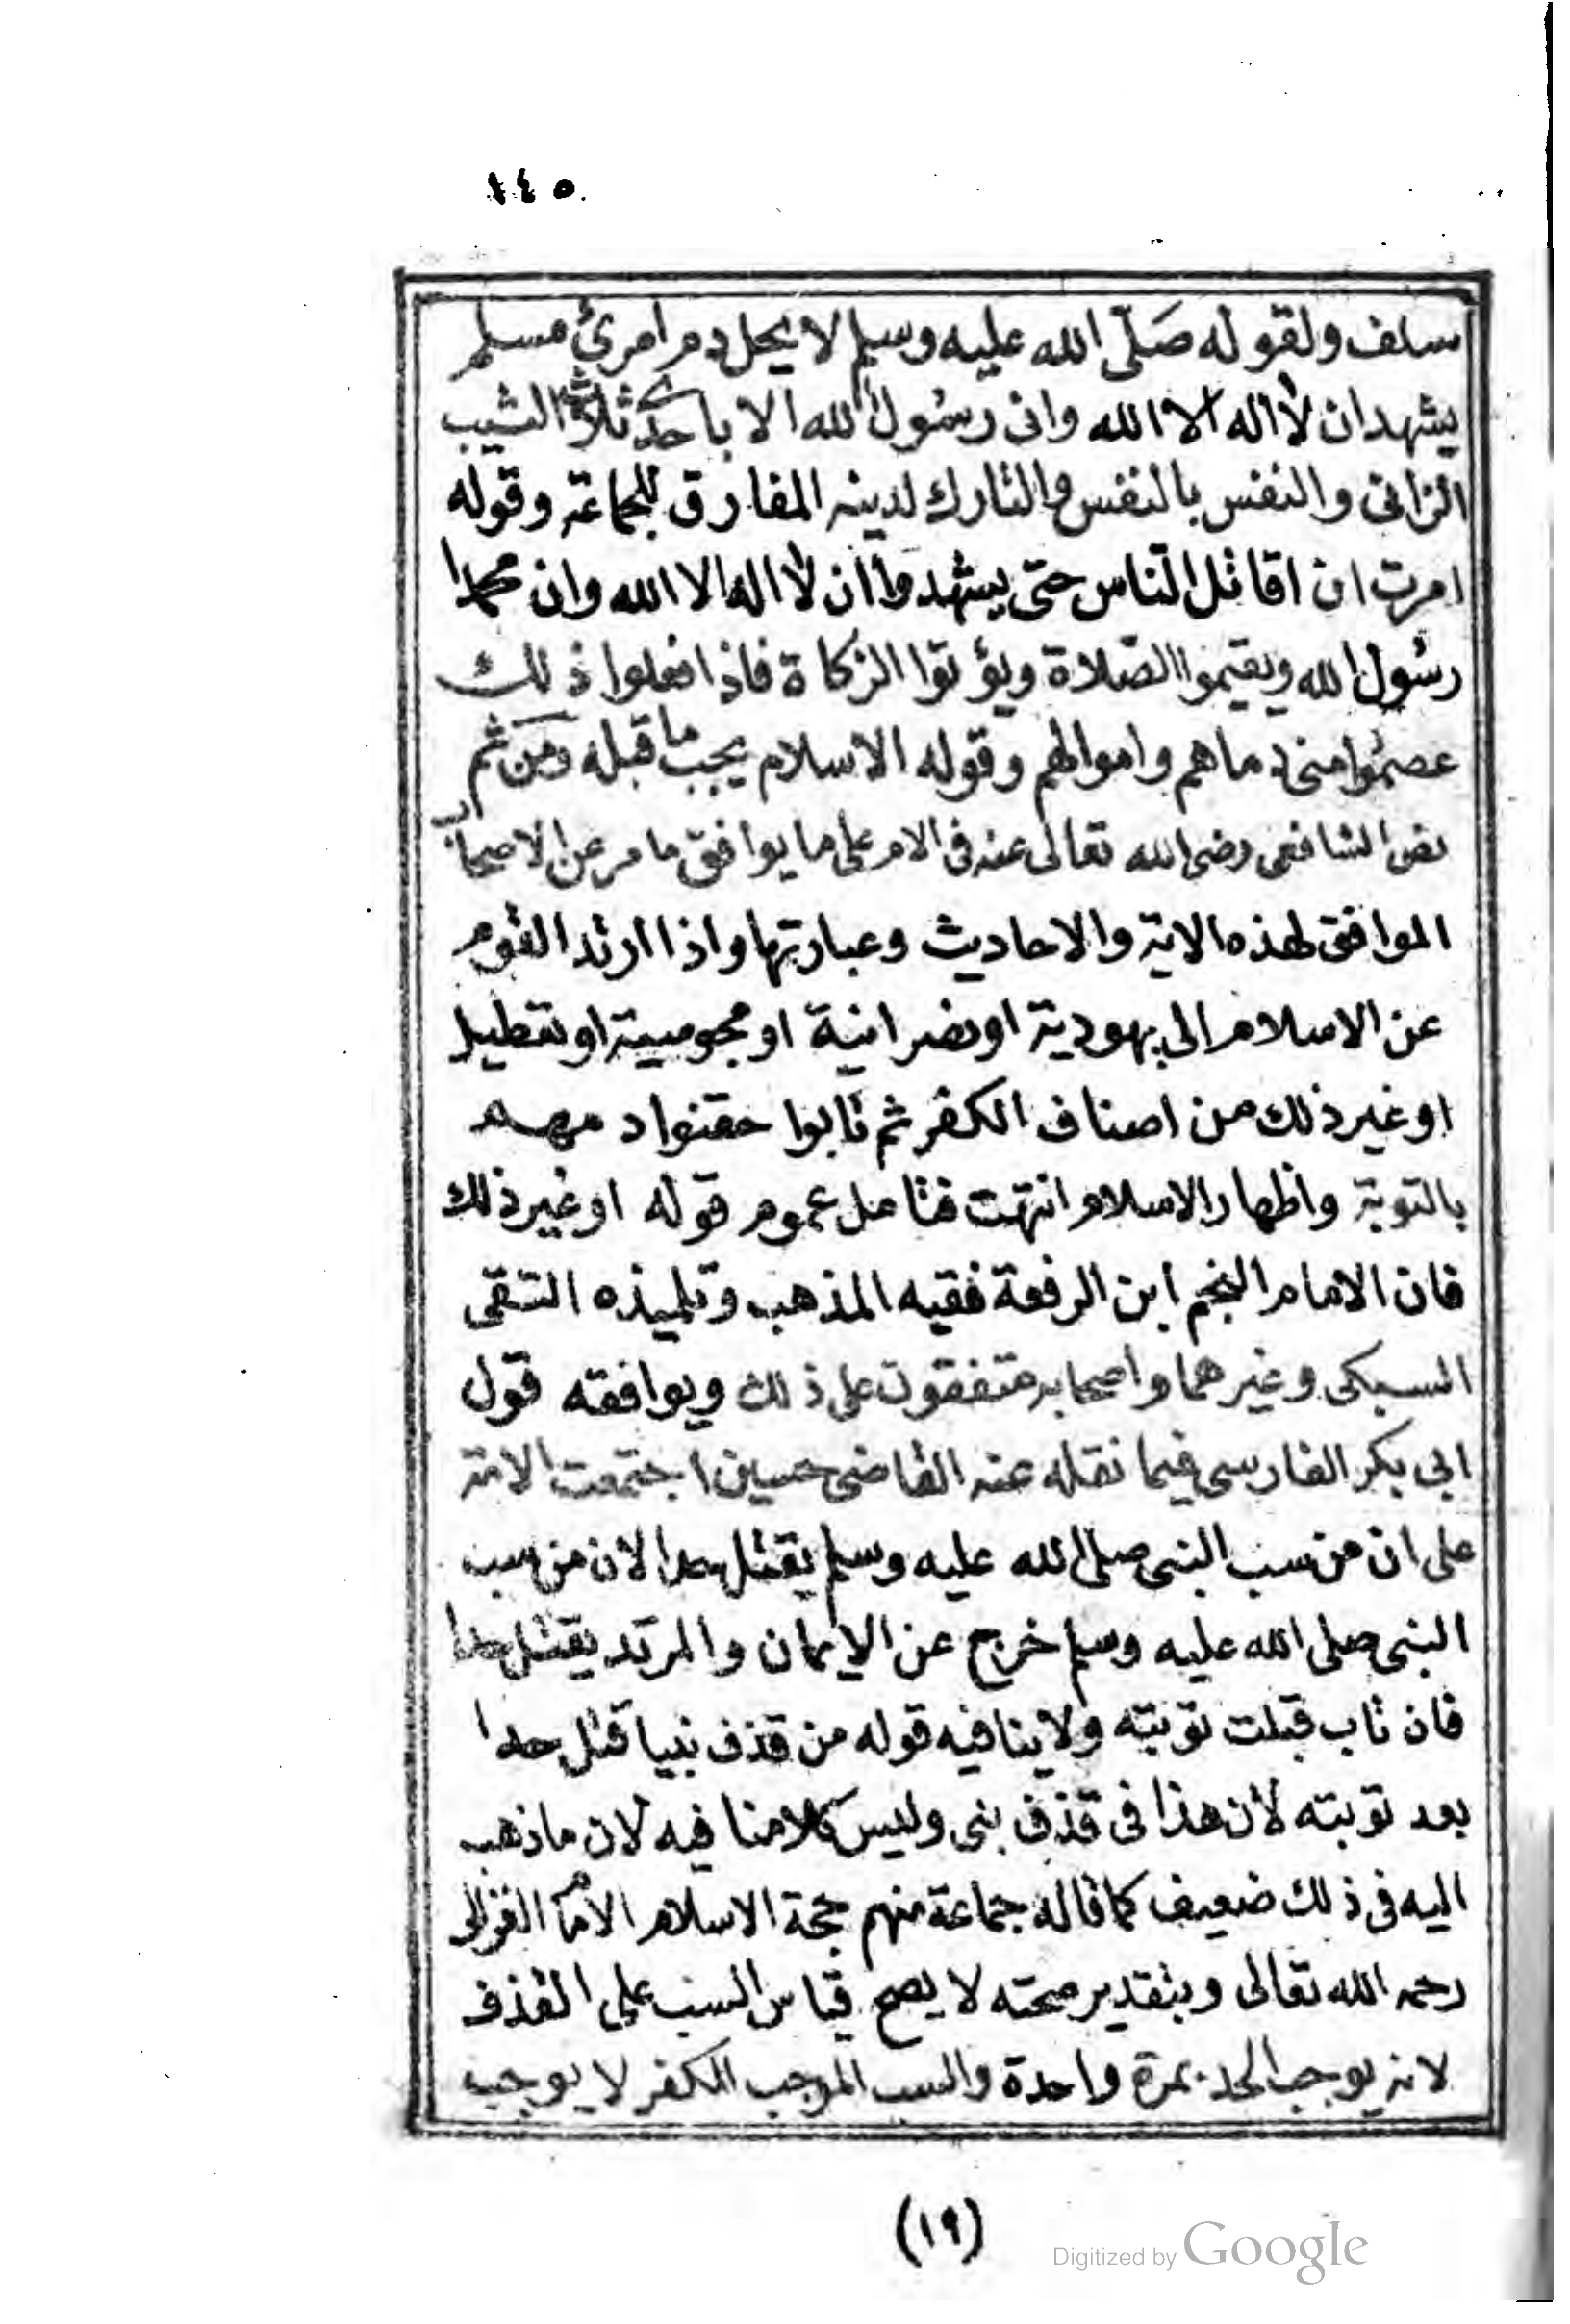 ١٤٥
سلف ولقوله صَلّى الله عليه وسلم لا يحل دم امرئ مسلم
يشهد ان لا اله الا الله وانى رسول الله الا باحدى ثلاث الثيب
الزانى والنفس بالنفس والتارك لدينه المفارق للجماعة وقوله
امرت ان اقاتل الناس حتى يشهدوا ان لا اله الا الله وان محمدا
رسول الله ويقيموا الصلاة ويؤتوا الزكاة فاذا فعلوا ذلك
عصموا منى دماهم واموالهم وقوله الاسلام يجب ما قبله ومن ثم
نص الشافعى رضى الله تعالى عنه فى الام على ما يوافق ما مر عن الاصحاب
الموافق لهذه الاية والاحاديث وعبارتها واذا ارتد القوم
عن الاسلام الى يهودية او نصرانية او مجوسية او تعطيل
او غير ذلك من اصناف الكفر ثم تابوا حقنوا دمهم
بالتوبة واظهار الاسلام انتهت فتامل عموم قوله او غير ذلك
فان الامام النجم ابن الرفعة فقيه المذهب وتلميذه التقى
السبكى وغيرهما واصحابه متفقون على ذلك ويوافقه قول
ابى بكر الفارسى فيما نقله عنه القاضى حسين اجتمعت الامة
على ان من سب النبى صلى الله عليه وسلم يقتل حدا لان من سب
النبى صلى الله عليه وسلم خرج عن الايمان والمرتد يقتل حدا
فان تاب قبلت توبته ولا ينافيه قوله من قذف نبيا قتل حدا
بعد توبته لان هذا فى قذف نبى وليس كلامنا فيه لان ما ذهب
اليه فى ذلك ضعيف كما قاله جماعة منهم حجة الاسلام الامام الغزالى
رحمه الله تعالى وبتقدير صحته لا يصح قياس السب على القذف
لانه يوجب الحد بمرة واحدة والسب الموجب للكفر لا يوجب
(١٩)
Digitized by Google